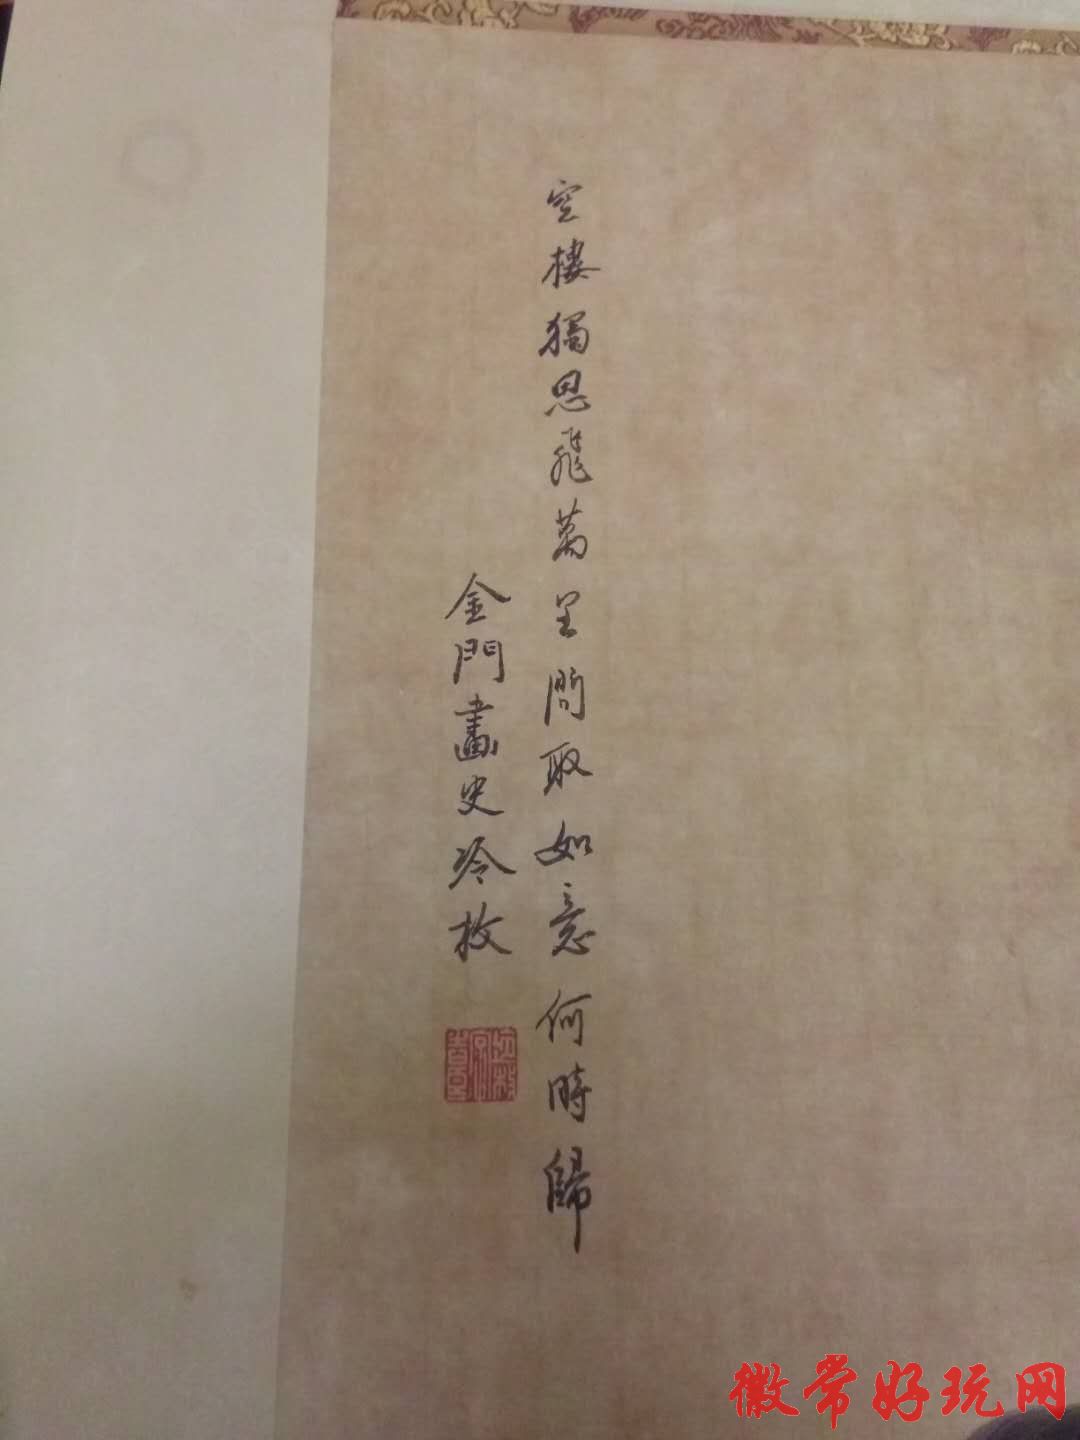 空樓獨思飛萬里問取如意何時歸
金門畫史冷枚
徽常好玩网